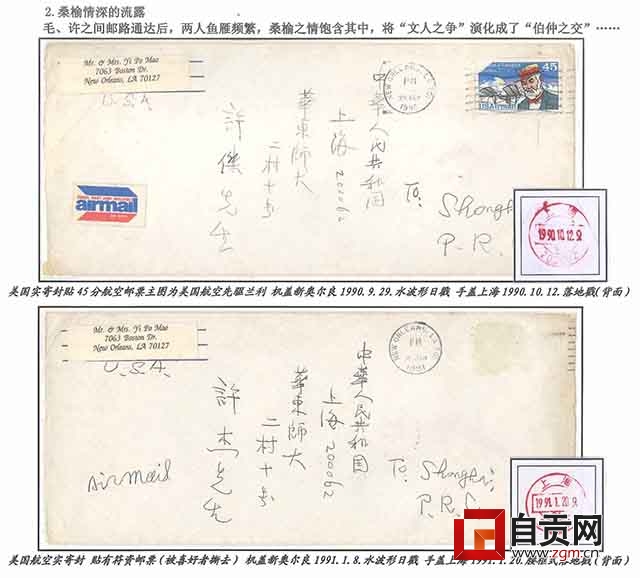 2.桑榆情深的流露
毛、许之间邮路通达后，两人鱼雁频繁，桑榆之情饱含其中，将“文人之争”演化成了“伯仲之交”……
Mr. & Mrs. Yi Po Mao
7063 Boston Dr.
New Orleans, LA 70127
U.S.A
airmail
NEW ORLEANS, LA
PM
1990
45
USAirmail
中華人民共和国
上海 200062
華東師大
二村十号
許傑先生
To:
Shangh
P.R.
1990.10.12.9
美国实寄封贴45分航空邮票主图为美国航空先驱兰利 机盖新奥尔良1990.9.29.水波形日戳 手盖上海1990.10.12.落地戳(背面)
Mr. & Mrs. Yi Po Mao
7063 Boston Dr.
New Orleans, LA 70127
U.S.A.
airmail
NEW ORLEANS, LA
PM
1991
中華人民共和国
上海 200062
華東師大
二村十号
許杰先生
To:
Shanghai
P.R.C
上海
1991.1.20.9
美国航空实寄封 贴有符资邮票(被喜好者撕去) 机盖新奥尔良1991.1.8.水波形日戳 手盖上海1991.1.20.腰框式落地戳(背面)
自贡网
www.zgm.cn